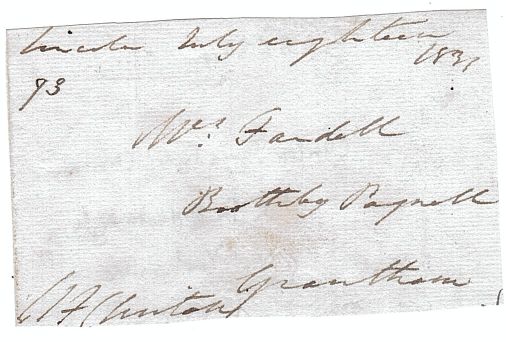 Lincoln July eighteen 1831
93
Mrs. Fardell
Boothby Pagnell
Grantham